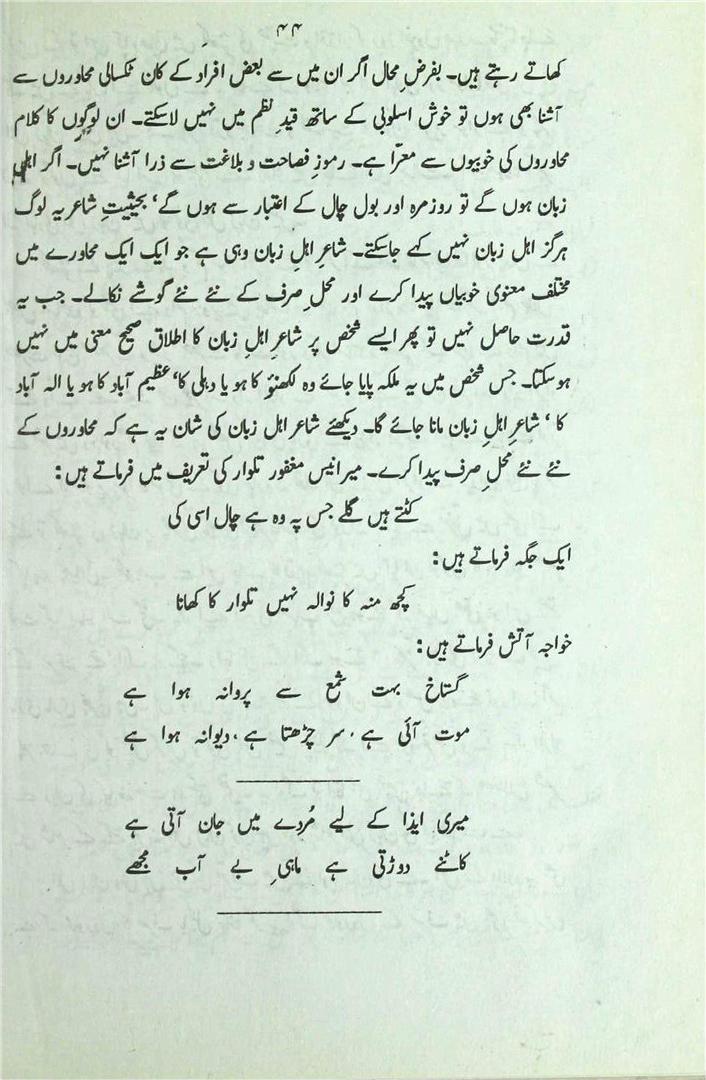 ۴۴
کھاتے رہتے ہیں۔ بفرضِ محال اگر ان میں سے بعض افراد کے کان ٹکسالی محاوروں سے
آشنا بھی ہوں تو خوش اسلوبی کے ساتھ قیدِ نظم میں نہیں لاسکتے۔ ان لوگوں کا کلام
محاوروں کی خوبیوں سے معرّا ہے۔ رموزِ فصاحت و بلاغت سے ذرا آشنا نہیں۔ اگر اہلِ
زبان ہوں گے تو روزمرہ اور بول چال کے اعتبار سے ہوں گے‘ بحیثیتِ شاعر یہ لوگ
ہرگز اہل زبان نہیں کہے جاسکتے۔ شاعرِ اہلِ زبان وہی ہے جو ایک ایک محاورے میں
مختلف معنوی خوبیاں پیدا کرے اور محلِ صرف کے نئے نئے گوشے نکالے۔ جب یہ
قدرت حاصل نہیں تو پھر ایسے شخص پر شاعرِ اہلِ زبان کا اطلاق صحیح معنی میں نہیں
ہوسکتا۔ جس شخص میں یہ ملکہ پایا جائے وہ لکھنؤ کا ہو یا دہلی کا‘ عظیم آباد کا ہو یا الہ آباد
کا ‘ شاعرِ اہلِ زبان مانا جائے گا۔ دیکھئے شاعر اہل زبان کی شان یہ ہے کہ محاوروں کے
نئے نئے محلِ صرف پیدا کرے۔ میرانیس مغفور تلوار کی تعریف میں فرماتے ہیں:
کٹتے ہیں گلے جس پہ وہ ہے چال اسی کی
ایک جگہ فرماتے ہیں:
کچھ منہ کا نوالہ نہیں تلوار کا کھانا
خواجہ آتش فرماتے ہیں:
گستاخ بہت شمع سے پروانہ ہوا ہے
موت آئی ہے، سر چڑھتا ہے، دیوانہ ہوا ہے
میری ایذا کے لیے مُردے میں جان آتی ہے
کاٹنے دوڑتی ہے ماہیِ بے آب مجھے